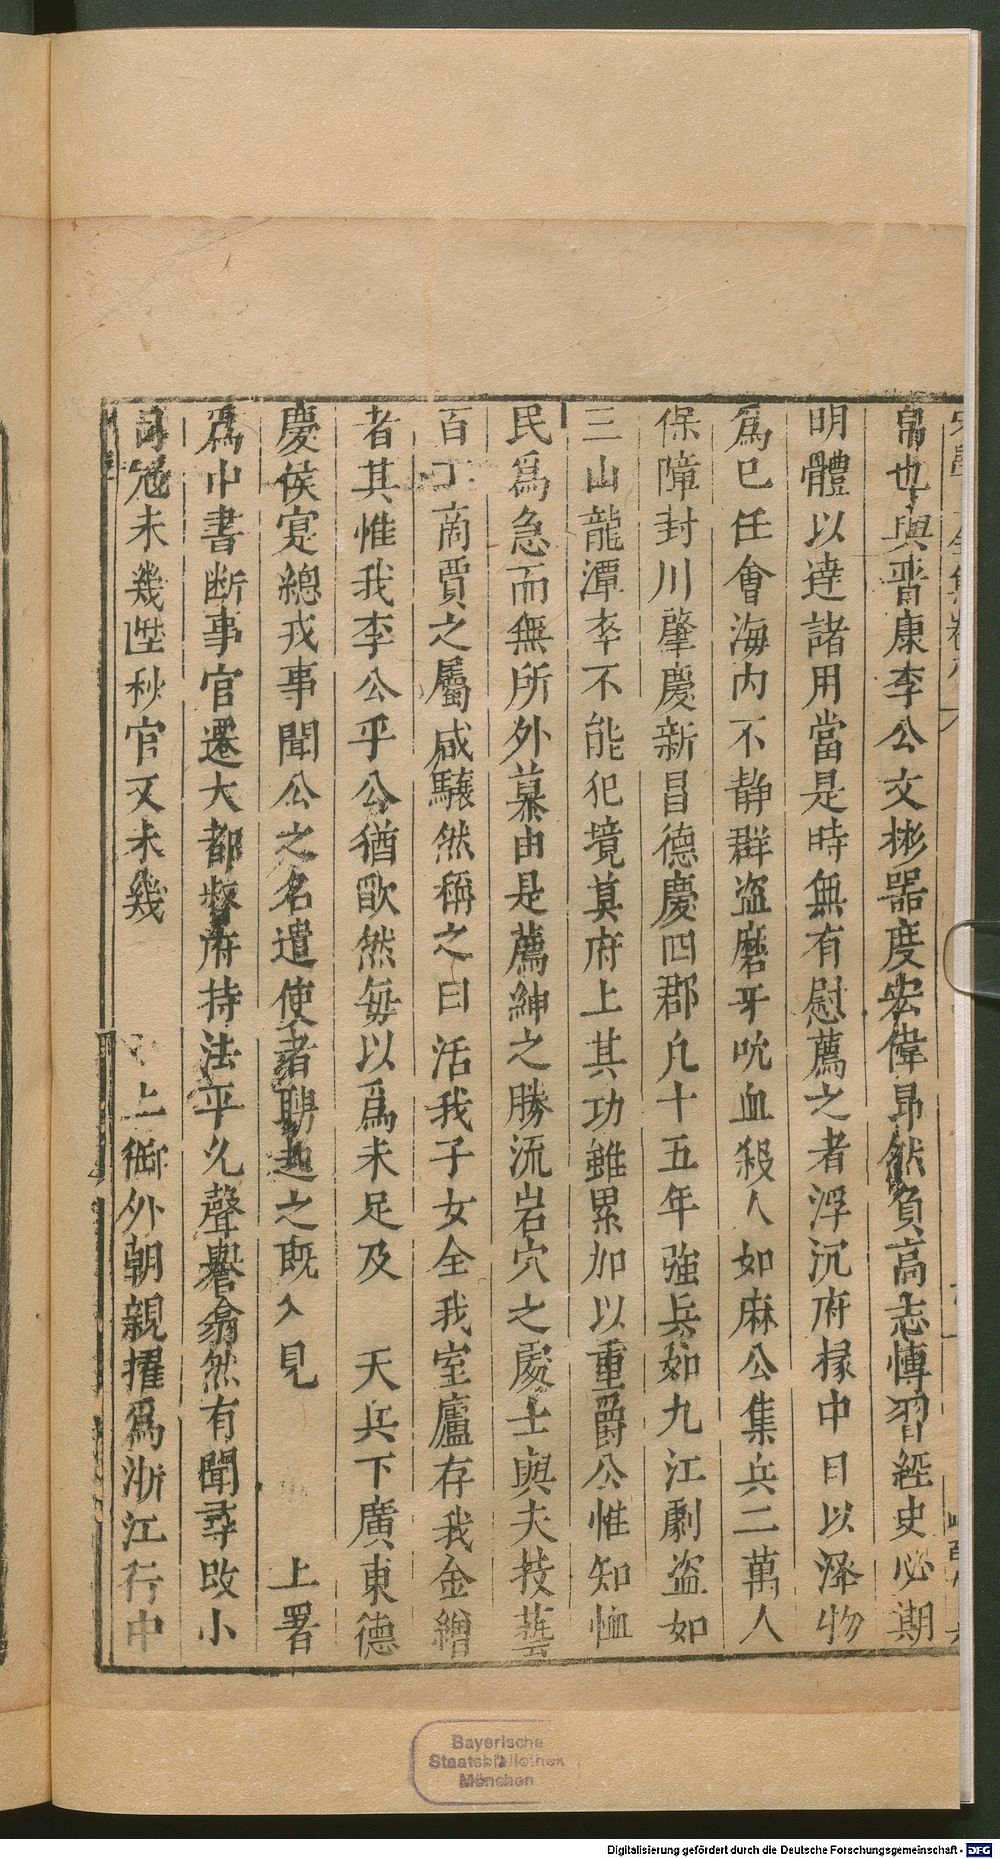 帛也與晋康李公文彬器度宏偉昻然負高志慱習經史必期
明體以達諸用當是時無有慰薦之者浮沉府掾中日以澤物
爲已任會海内不静群盗磨牙吮血殺人如麻公集兵二萬人
保障封川肇慶新昌德慶四郡凡十五年強兵如九江劇盗如
三山龍潭李不能犯境莫府上其功雖累加以重爵公惟知恤
民爲急而無所外慕由是薦紳之勝流岩穴之處士與夫技藝
百工商賈之屬咸驩然稱之曰活我子女全我室廬存我金繒
者其惟我李公乎公猶歉然每以爲未足及 天兵下廣東德
慶侯寔總戎事聞公之名遣使者聘起之既入見 上署
爲中書断事官遷大都督府持法平允聲譽翕然有聞尋改小
司冦未幾陞秋官又未幾 上御外朝親擢爲浙江行中
Bayerische
Staatsbibliothek
München
Digitalisierung gefördert durch die Deutsche Forschungsgemeinschaft - DFG